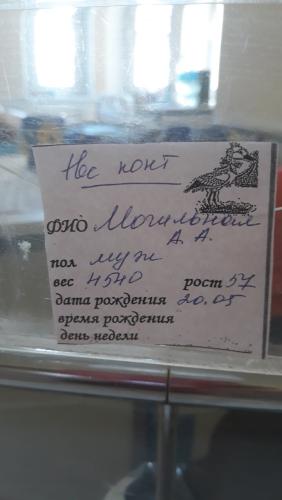 Нес конт
ФИО Могильном
А. А.
пол муж
вес 4540 рост 57
дата рождения 20.05
время рождения
день недели